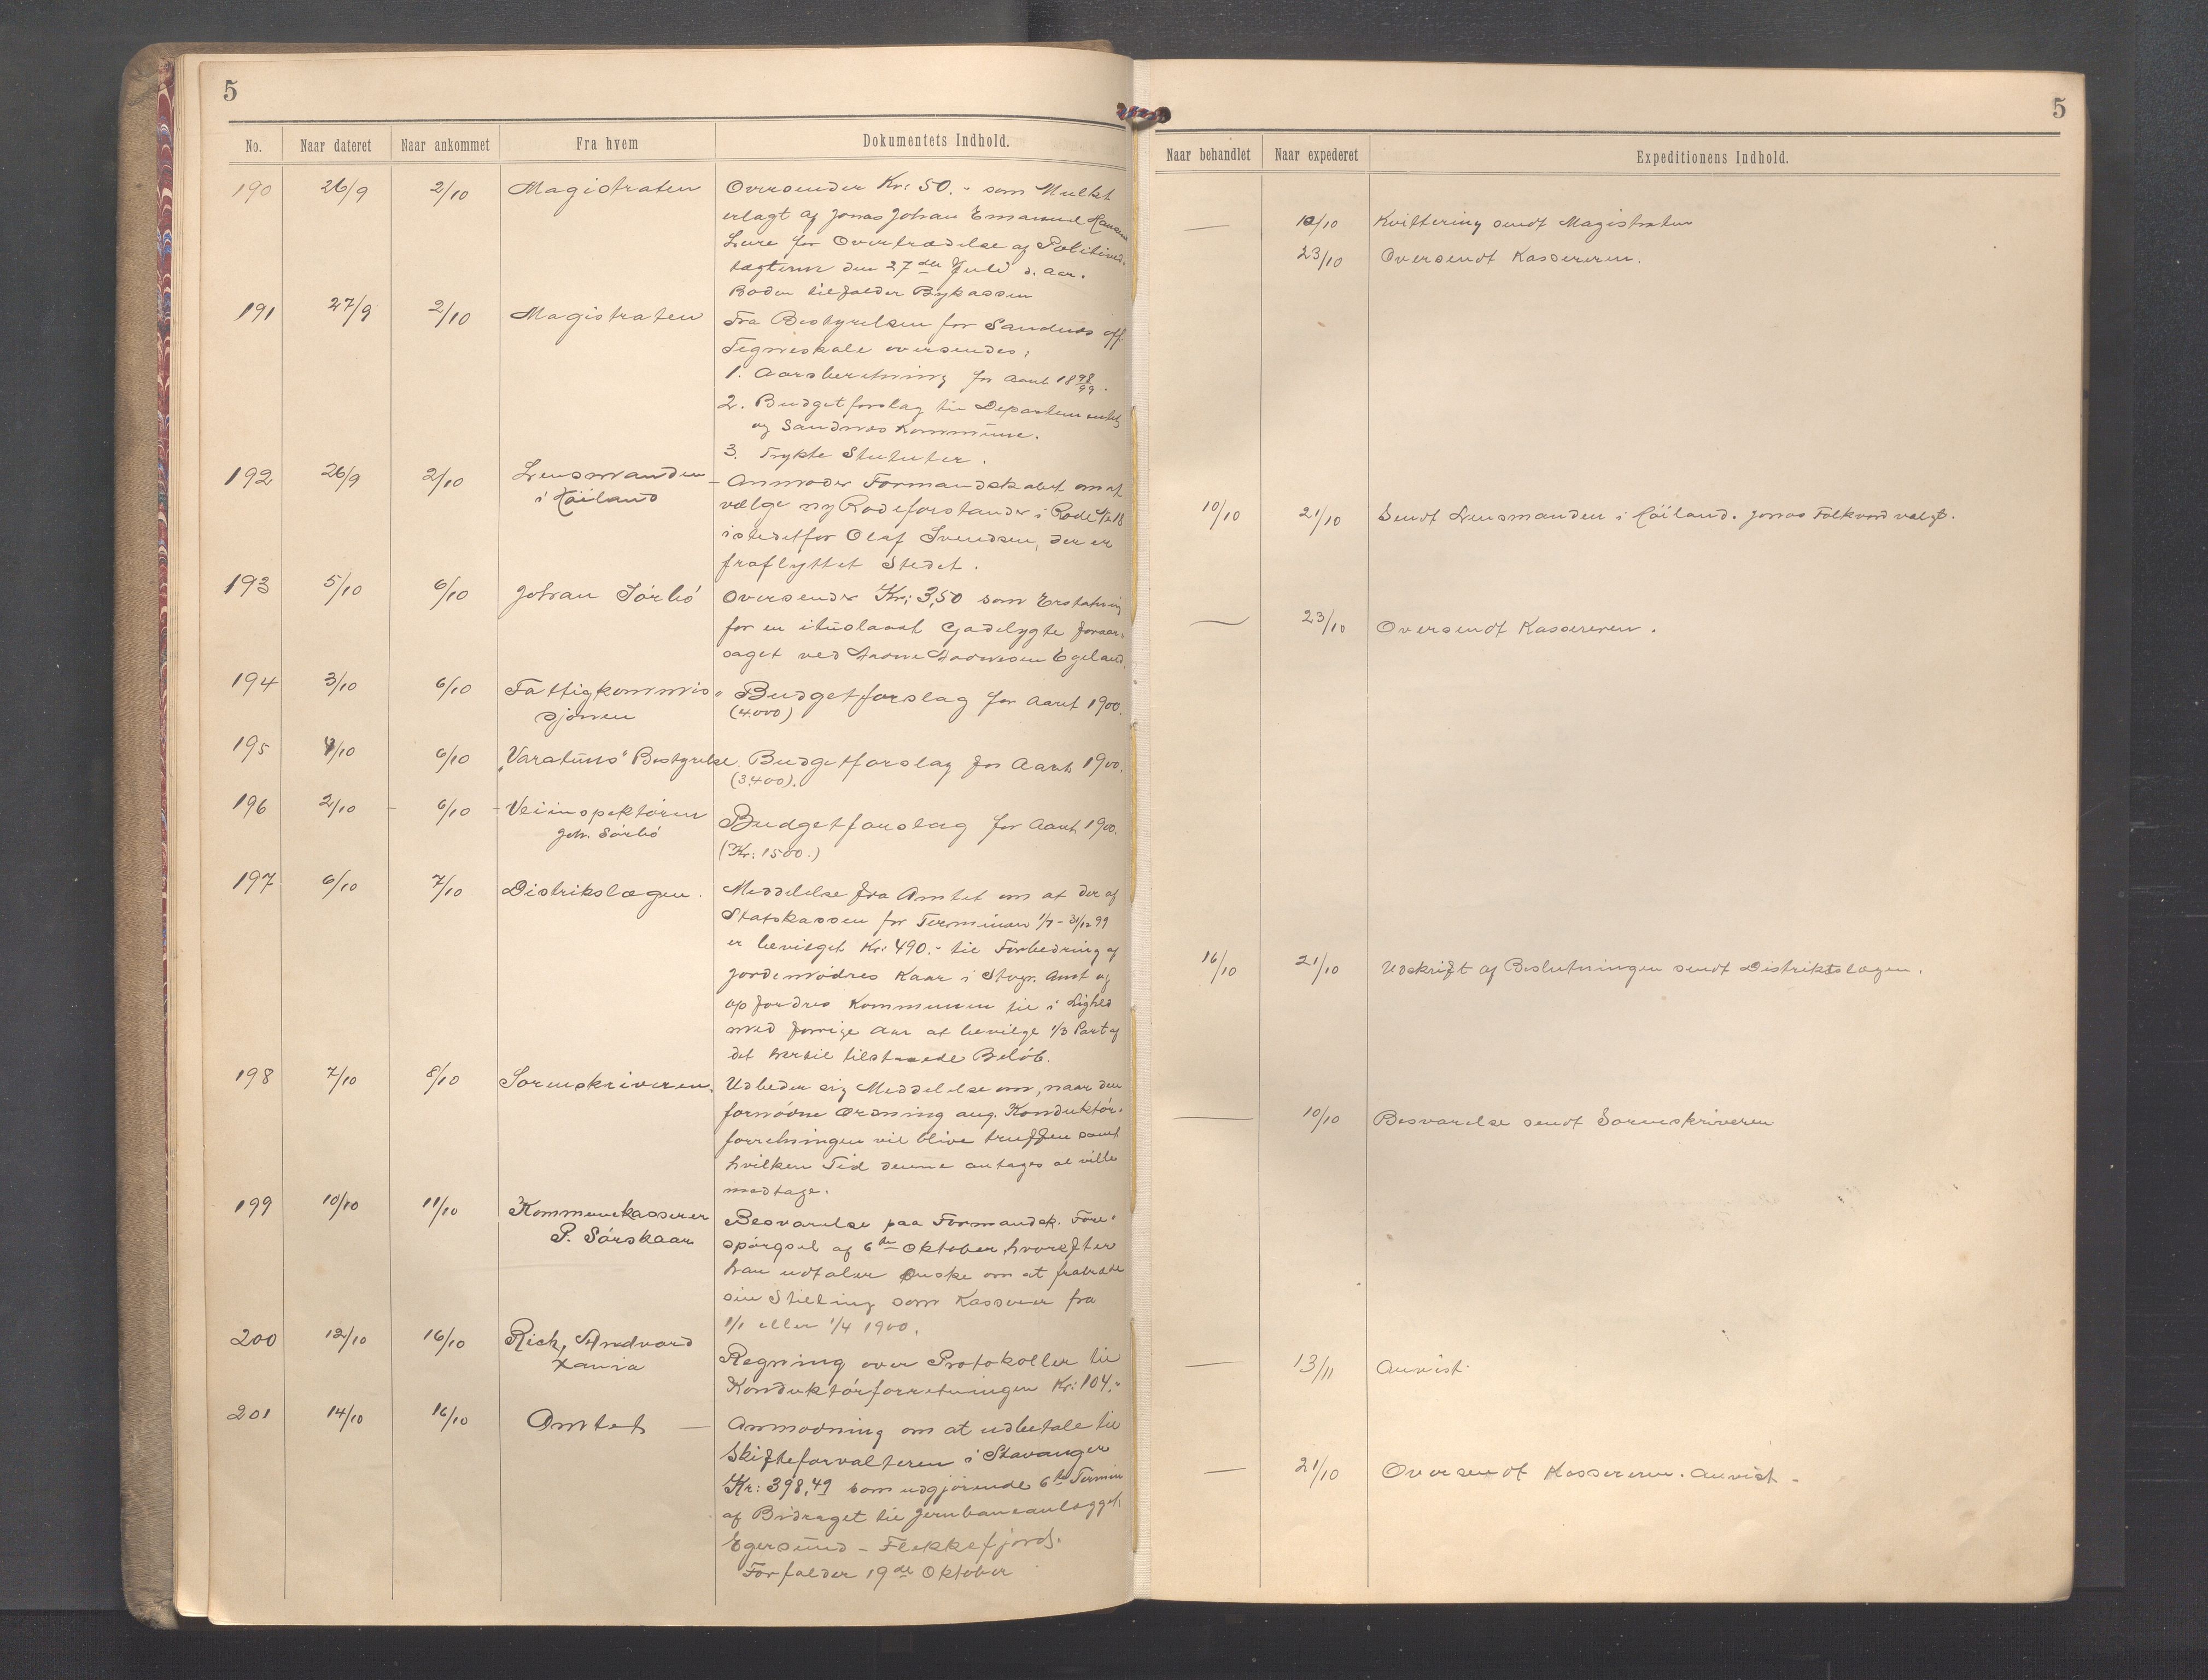 5
No.
Naar dateret
Naar ankommet
Fra hvem
Dokumentets Indhold.
190
26/9
2/10
Magistraten
Oversender Kr: 50.- som Mulkt
erlagt af Jonas Johan Emanuel Hansen
Lure for Overtrædelse af Politived-
tægterne den 27de Juli d. Aar.
Boden tilfalder Bykassen
191
27/9
2/10
Magistraten
Fra Bestyrelsen for Sandnes off.
Tegneskole oversendes;
1. Aarsberetning for Aaret 1898/99.
2. Budgetforslag til Departementet
og Sandnes Kommune.
3. Trykte Statuter.
192
26/9
2/10
Lensmanden
i Höiland
Anmoder Formandskabet om at
vælge ny Rodeforstander i Rode
istedetfor Olaf Svendsen, der er
fraflyttet Stedet.
193
5/10
6/10
Johan Sörbó
Oversender Kr; 3,50 som Erstatning
for en ituslaaet Gadelygte foraar-
saget ved Egeland.
194
3/10
6/10
Fattigkommis-
sjonen
Budgetforslag for Aaret 1900.
(4000)
195
4/10
6/10
"Varatuns" Bestyrelse.
Budgetforslag for Aaret 1900.
(3,400).
196
2/10
6/10
Veiinspektören
Joh. Sörbó
Budgetforslag for Aaret 1900.
(Kr: 1500.)
197
6/10
7/10
Distrikslægen.
Meddelelse fra Amtet om at der af
Statskassen for Terminen 1/7 - 31/12 99
er bevilget Kr: 490.- til Forbedring af
Jordemödres Kaar i Stvgr. Amt og
opfordres Kommunen til i Lighed
med forrige Aar at bevilge 1/3 Part af
det hertil tilstaaede Belöb.
198
7/10
8/10
Sorenskriveren.
Udbeder sig Meddelelse om, naar den
fornödne Ordning ang. Konduktör-
forretningen vil blive truffen samt
hvilken Tid denne antages at ville
medtage.
199
10/10
11/10
Kommunekasserer
P. Sörskaar
Besvarelse paa Formandsk. Fore-
spörgsel af 6te Oktober, hvorefter
han udtaler Ønske om at fratræde
sin Stilling som Kasserer fra
1/1 eller 1/4 1900.
200
12/10
16/10
Rich. Andvord
Xania
Regning over Protokoller til
Konduktörforretningen Kr: 104.-
201
14/10
16/10
Amtet
Anmodning om at udbetale til
Skifteforvalteren i Stavanger
Kr: 398,49 som udgjörende 6te Termin
af Bidraget til Jernbaneanlægget
Egersund - Flekkefjord.
Forfalder 19de Oktober
5
Naar behandlet
Naar expederet
Expeditionens Indhold.
—
12/10
Kvittering sendt Magistraten
23/10
Oversendt Kassereren.
10/10
21/10
Sendt Lensmanden i Höiland. Jonas Folkvord valgt.
—
23/10
Oversendt Kassereren.
16/10
21/10
Udskrift af Beslutningen sendt Distriktslægen.
—
10/10
Besvarelse sendt Sorenskriveren
—
13/11
Anvist.
—
21/10
Oversendt Kassereren. Anvist -